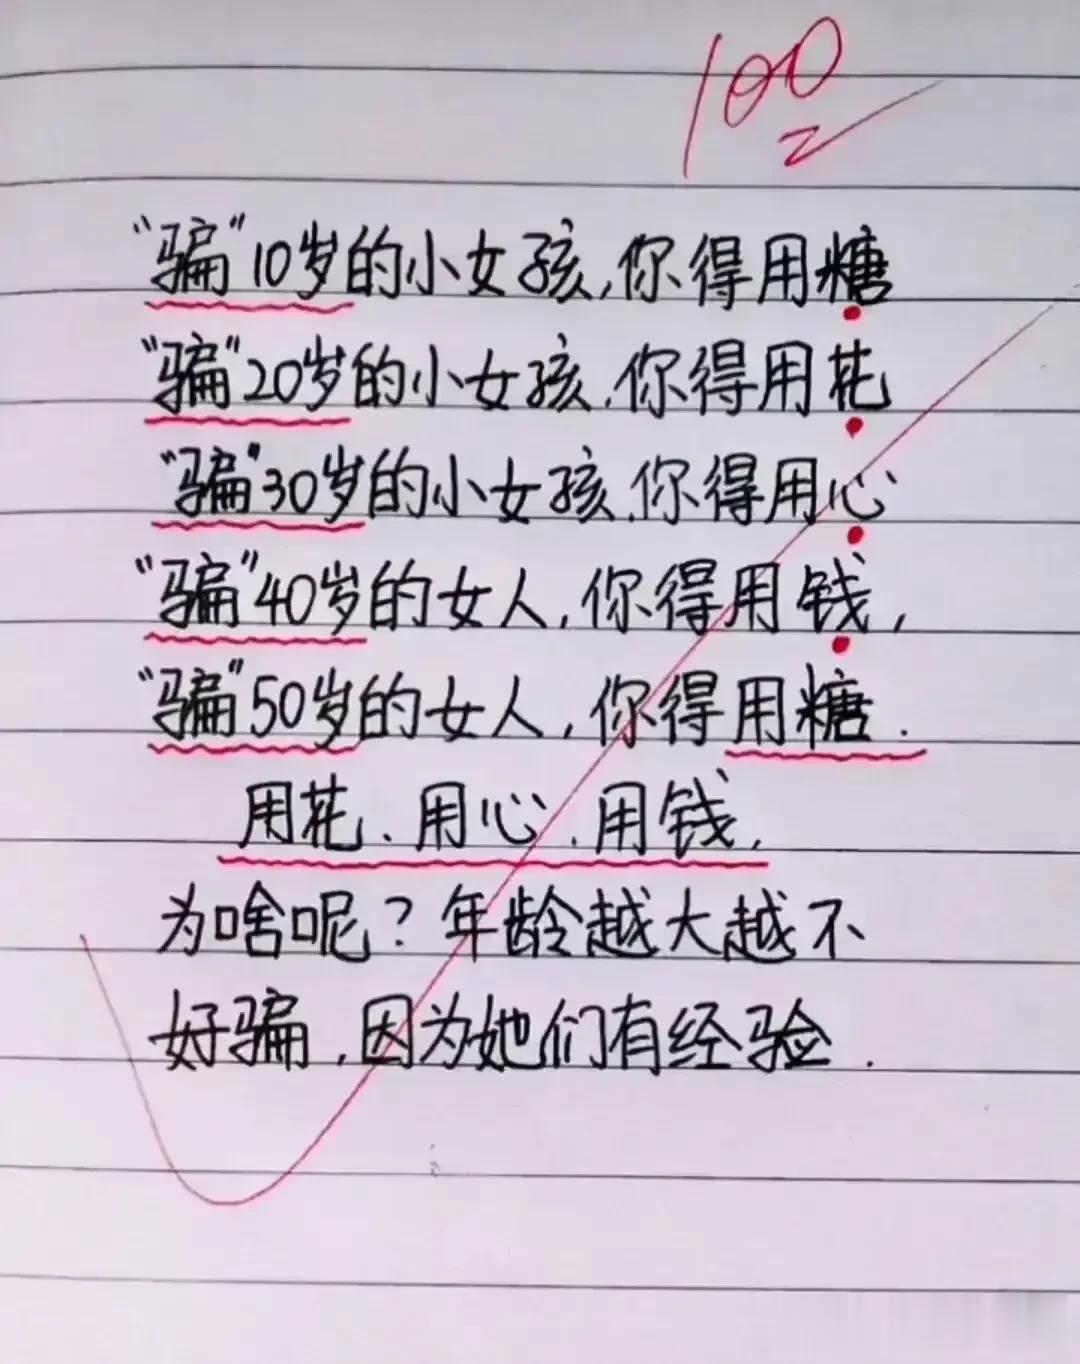 100
"骗"10岁的小女孩,你得用糖
"骗"20岁的小女孩.你得用花
"骗"30岁的小女孩.你得用心
"骗"40岁的女人,你得用钱,
"骗"50岁的女人,你得用糖.
用花、用心、用钱.
为啥呢?年龄越大越不
好骗,因为她们有经验.